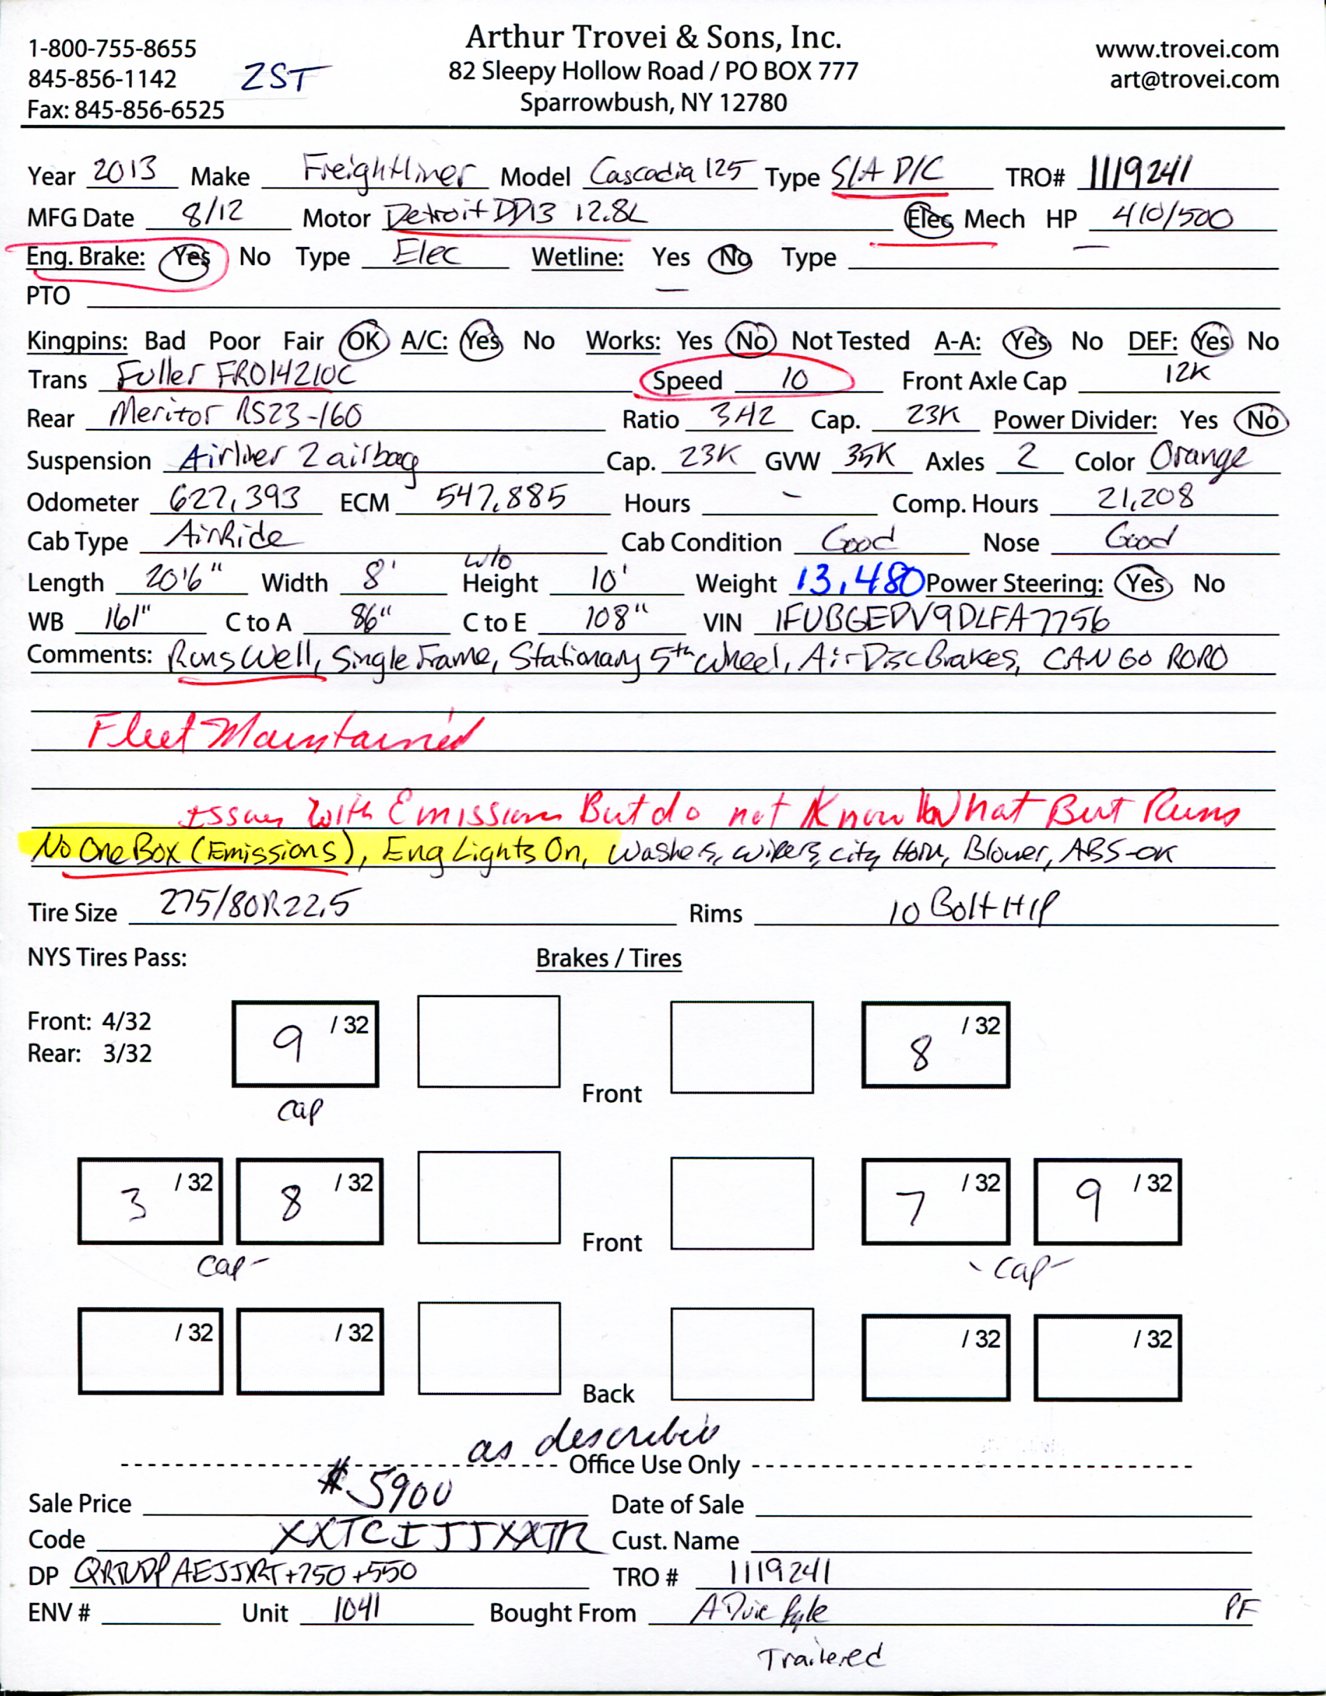 Arthur Trovei & Sons, Inc.
1-800-755-8655 82 Sleepy Hollow Road / PO BOX 777 www.trovei.com
845-856-1142 ZST Sparrowbush, NY 12780 art@trovei.com
Fax: 845-856-6525
Year 2013 Make Freightliner Model Cascadia 125 Type S/A D/C TRO# 1119241
MFG Date 8/12 Motor Detroit DD13 12.8L Elec Mech HP 410/500
Eng. Brake: Yes No Type Elec Wetline: Yes No Type
PTO
Kingpins: Bad Poor Fair OK A/C: Yes No Works: Yes No Not Tested A-A: Yes No DEF: Yes No
Trans Fuller FRO14210C Speed 10 Front Axle Cap 12K
Rear Meritor RS23-160 Ratio 342 Cap. 23K Power Divider: Yes No
Suspension Airliner 2 airbag Cap. 23K GVW 35K Axles 2 Color Orange
Odometer 627,393 ECM 547,885 Hours - Comp. Hours 21,208
Cab Type AirRide Cab Condition Good Nose Good
Length 20'6" Width 8' w/o Height 10' Weight 13,480 Power Steering: Yes No
WB 161" C to A 86" C to E 108" VIN 1FUBGEDV9DLFA7756
Comments: Runs Well, Single Frame, Stationary 5th Wheel, Air Disc Brakes, CAN GO RORO
Fleet Maintained
Issues With Emissions But do not Know What But Runs
No One Box (Emissions), Eng Lights On, Washers, Wipers, City Horn, Blower, ABS-OK
Tire Size 275/80R22.5 Rims 10 Bolt H/P
NYS Tires Pass: Brakes / Tires
Front: 4/32 9 /32 8 /32
Rear: 3/32
Front
Cap
3 /32 8 /32 7 /32 9 /32
Front
Cap- -Cap-
/32 /32 /32 /32
Back
as described
Office Use Only
Sale Price $5900 Date of Sale
Code XXTCIJJXXTR Cust. Name
DP +750+550 TRO # 1119241
ENV # Unit 1041 Bought From PF
Trailered